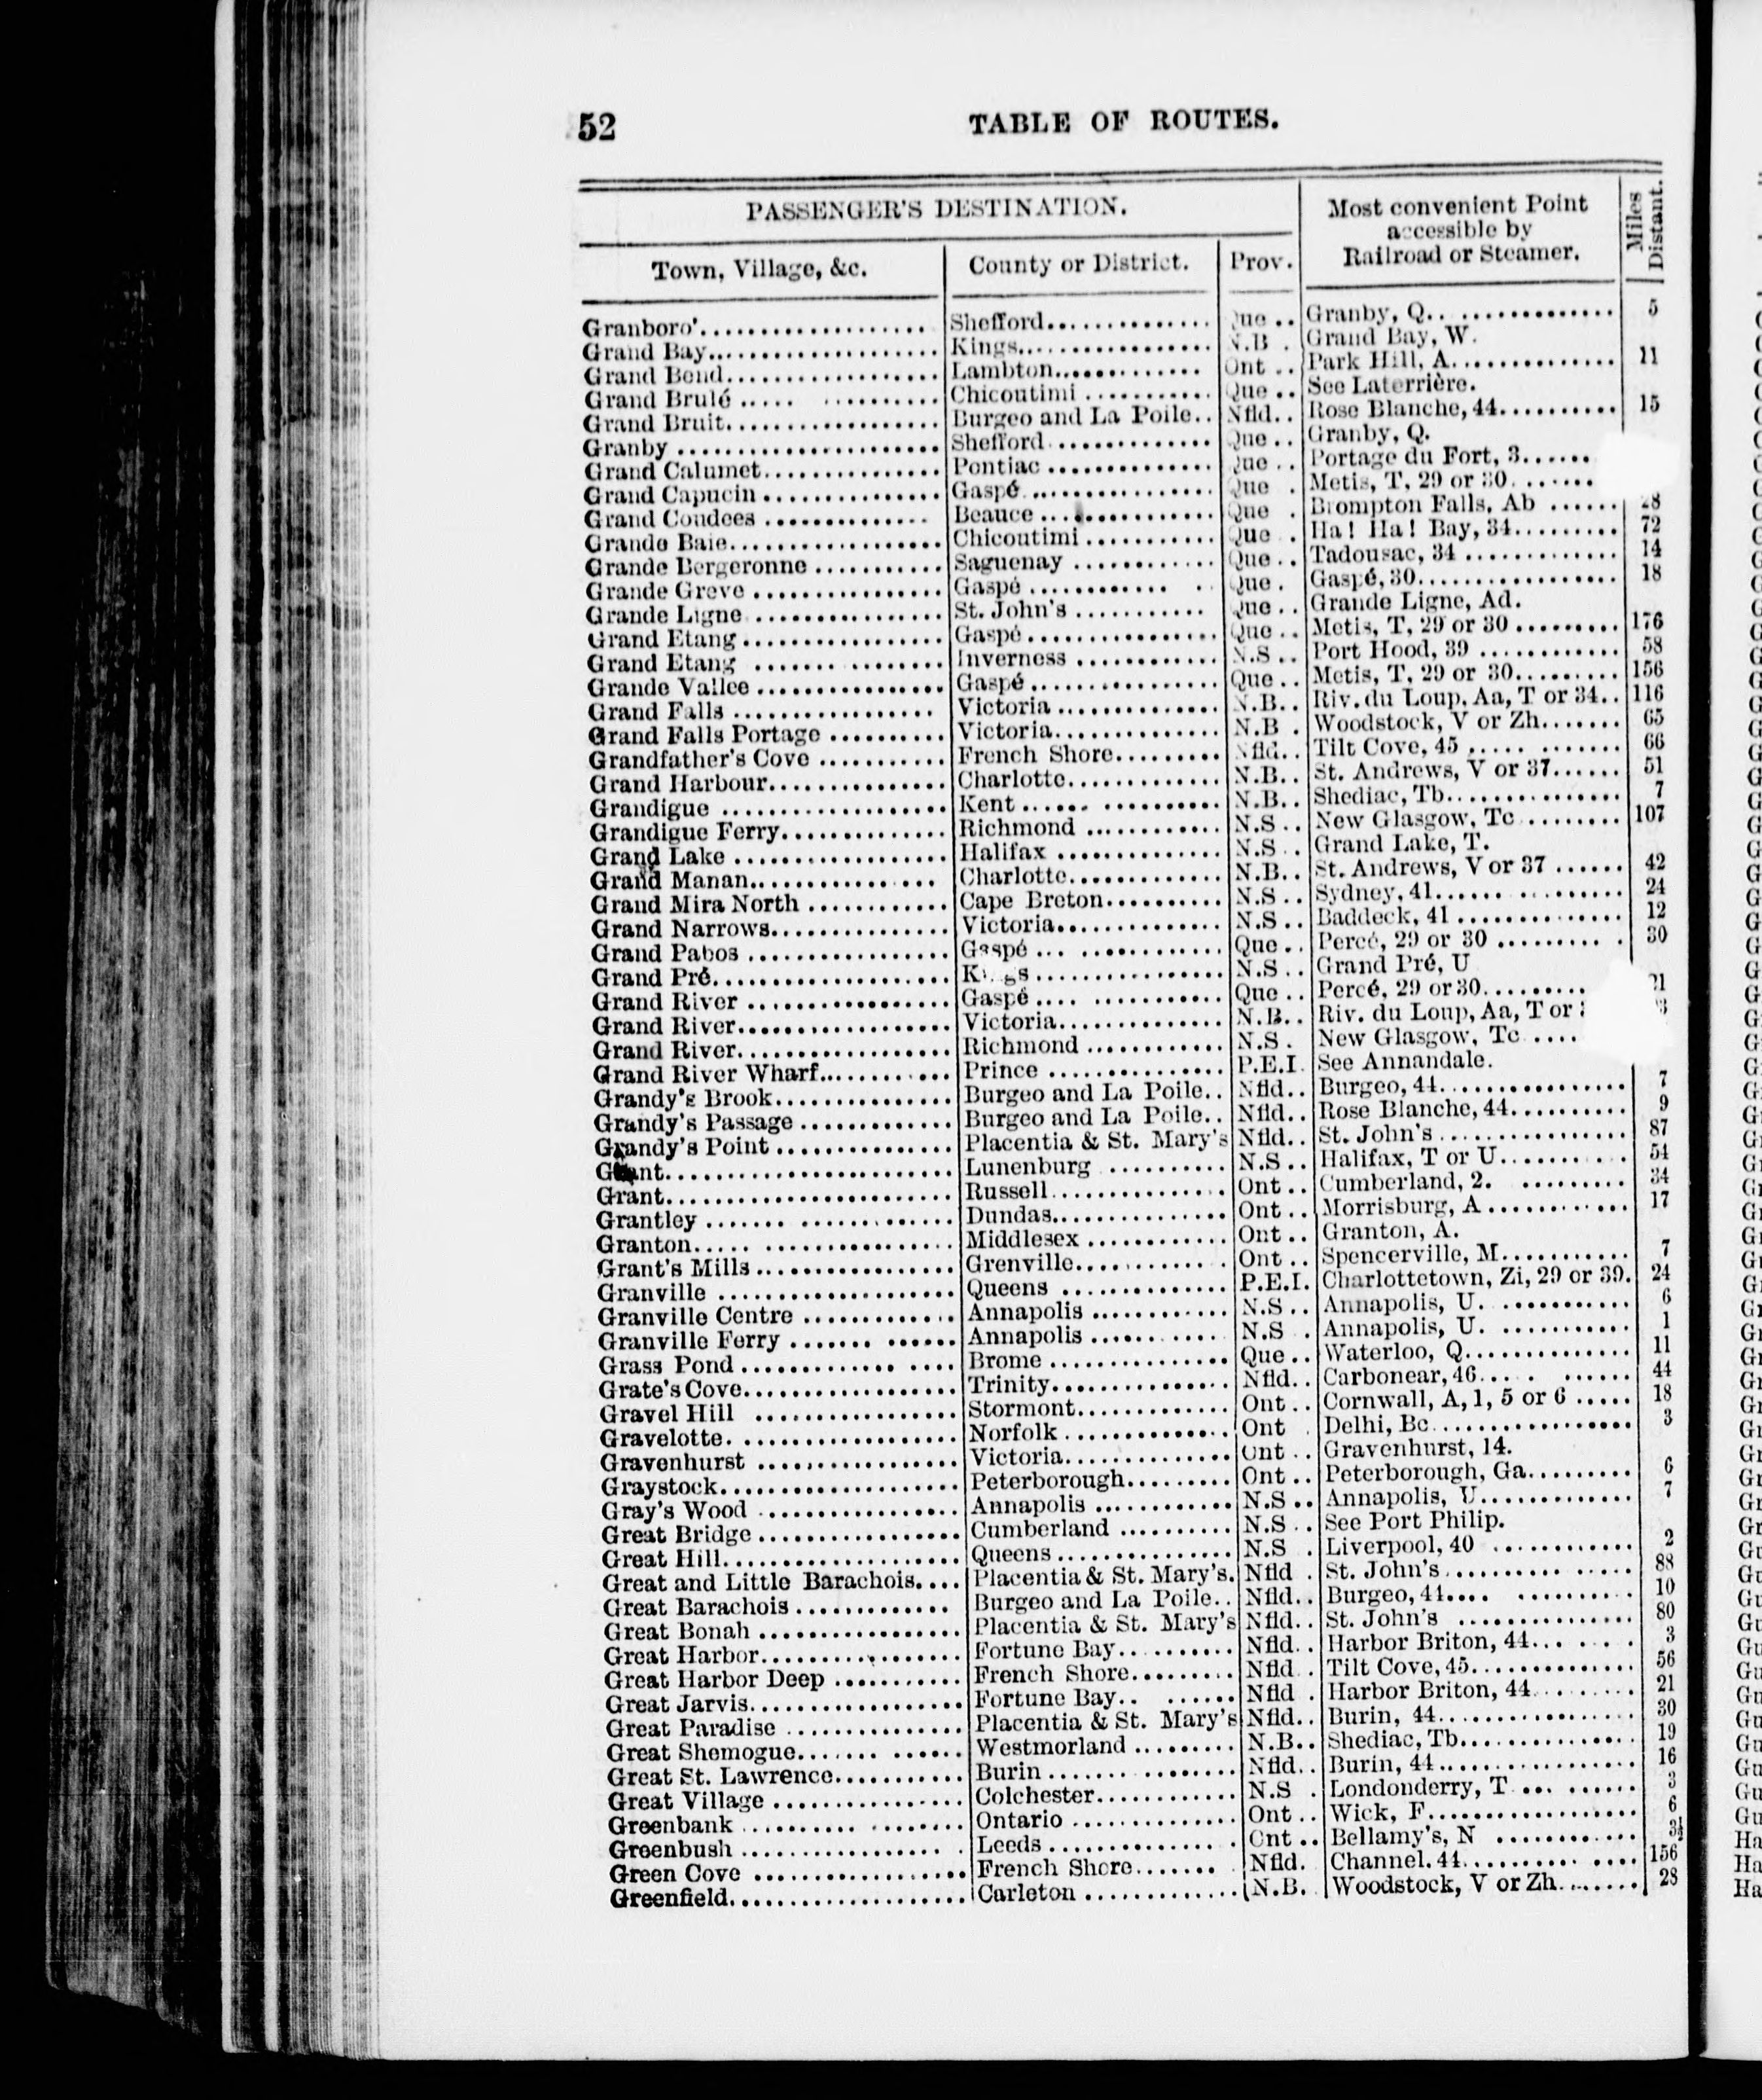 52 TABLE OF ROUTES.
PASSENGER'S DESTINATION. Most convenient Point accessible by Railroad or Steamer. Miles Distant.
Town, Village, &c. County or District. Prov.
Granboro' Shefford Que Granby, Q. 5
Grand Bay Kings N.B. Grand Bay, W.
Grand Bend Lambton Ont Park Hill, A. 11
Grand Brulé Chicoutimi Que See Laterrière.
Grand Bruit Burgeo and La Poile Nfld. Rose Blanche, 44 15
Granby Shefford Que Granby, Q.
Grand Calumet Pontiac Que Portage du Fort, 3
Grand Capucin Gaspé Que Metis, T, 29 or 30
Grand Coudees Beauce Que Brompton Falls, Ab 28
Grande Baie Chicoutimi Que Ha! Ha! Bay, 34 72
Grande Bergeronne Saguenay Que Tadousac, 34 14
Grande Greve Gaspé Que Gaspé, 30 18
Grande Ligne St. John's Que Grande Ligne, Ad.
Grand Etang Gaspé Que Metis, T, 29 or 30 176
Grand Etang Inverness N.S Port Hood, 39 58
Grande Vallee Gaspé Que Metis, T, 29 or 30 156
Grand Falls Victoria N.B. Riv. du Loup, Aa, T or 34 116
Grand Falls Portage Victoria N.B Woodstock, V or Zh 65
Grandfather's Cove French Shore Nfld. Tilt Cove, 45 66
Grand Harbour Charlotte N.B. St. Andrews, V or 37 51
Grandigue Kent N.B. Shediac, Tb 7
Grandigue Ferry Richmond N.S New Glasgow, Tc 107
Grand Lake Halifax N.S Grand Lake, T.
Grand Manan Charlotte N.B. St. Andrews, V or 37 42
Grand Mira North Cape Breton N.S Sydney, 41 24
Grand Narrows Victoria N.S Baddeck, 41 12
Grand Pabos Gaspé Que Percé, 29 or 30 30
Grand Pré Kings N.S Grand Pré, U
Grand River Gaspé Que Percé, 29 or 30
Grand River Victoria N.B. Riv. du Loup, Aa, T or
Grand River Richmond N.S New Glasgow, Tc
Grand River Wharf Prince P.E.I. See Annandale.
Grandy's Brook Burgeo and La Poile Nfld. Burgeo, 44 7
Grandy's Passage Burgeo and La Poile Nfld. Rose Blanche, 44 9
Grandy's Point Placentia & St. Mary's Nfld. St. John's 87
Grant Lunenburg N.S Halifax, T or U 54
Grant Russell Ont Cumberland, 2. 34
Grantley Dundas Ont Morrisburg, A 17
Granton Middlesex Ont Granton, A.
Grant's Mills Grenville Ont Spencerville, M 7
Granville Queens P.E.I. Charlottetown, Zi, 29 or 39. 24
Granville Centre Annapolis N.S Annapolis, U. 6
Granville Ferry Annapolis N.S Annapolis, U. 1
Grass Pond Brome Que Waterloo, Q 11
Grate's Cove Trinity Nfld. Carbonear, 46 44
Gravel Hill Stormont Ont Cornwall, A, 1, 5 or 6 18
Gravelotte Norfolk Ont Delhi, Bc 3
Gravenhurst Victoria Ont Gravenhurst, 14.
Graystock Peterborough Ont Peterborough, Ga 6
Gray's Wood Annapolis N.S Annapolis, U 7
Great Bridge Cumberland N.S See Port Philip.
Great Hill Queens N.S Liverpool, 40 2
Great and Little Barachois Placentia & St. Mary's. Nfld St. John's 88
Great Barachois Burgeo and La Poile Nfld. Burgeo, 44 10
Great Bonah Placentia & St. Mary's Nfld. St. John's 80
Great Harbor Fortune Bay Nfld. Harbor Briton, 44 3
Great Harbor Deep French Shore Nfld Tilt Cove, 45 56
Great Jarvis Fortune Bay Nfld Harbor Briton, 44 21
Great Paradise Placentia & St. Mary's Nfld. Burin, 44 30
Great Shemogue Westmorland N.B. Shediac, Tb 19
Great St. Lawrence Burin Nfld. Burin, 44 16
Great Village Colchester N.S Londonderry, T 3
Greenbank Ontario Ont Wick, F 6
Greenbush Leeds Ont Bellamy's, N 3½
Green Cove French Shore Nfld. Channel. 44 156
Greenfield Carleton N.B. Woodstock, V or Zh 28